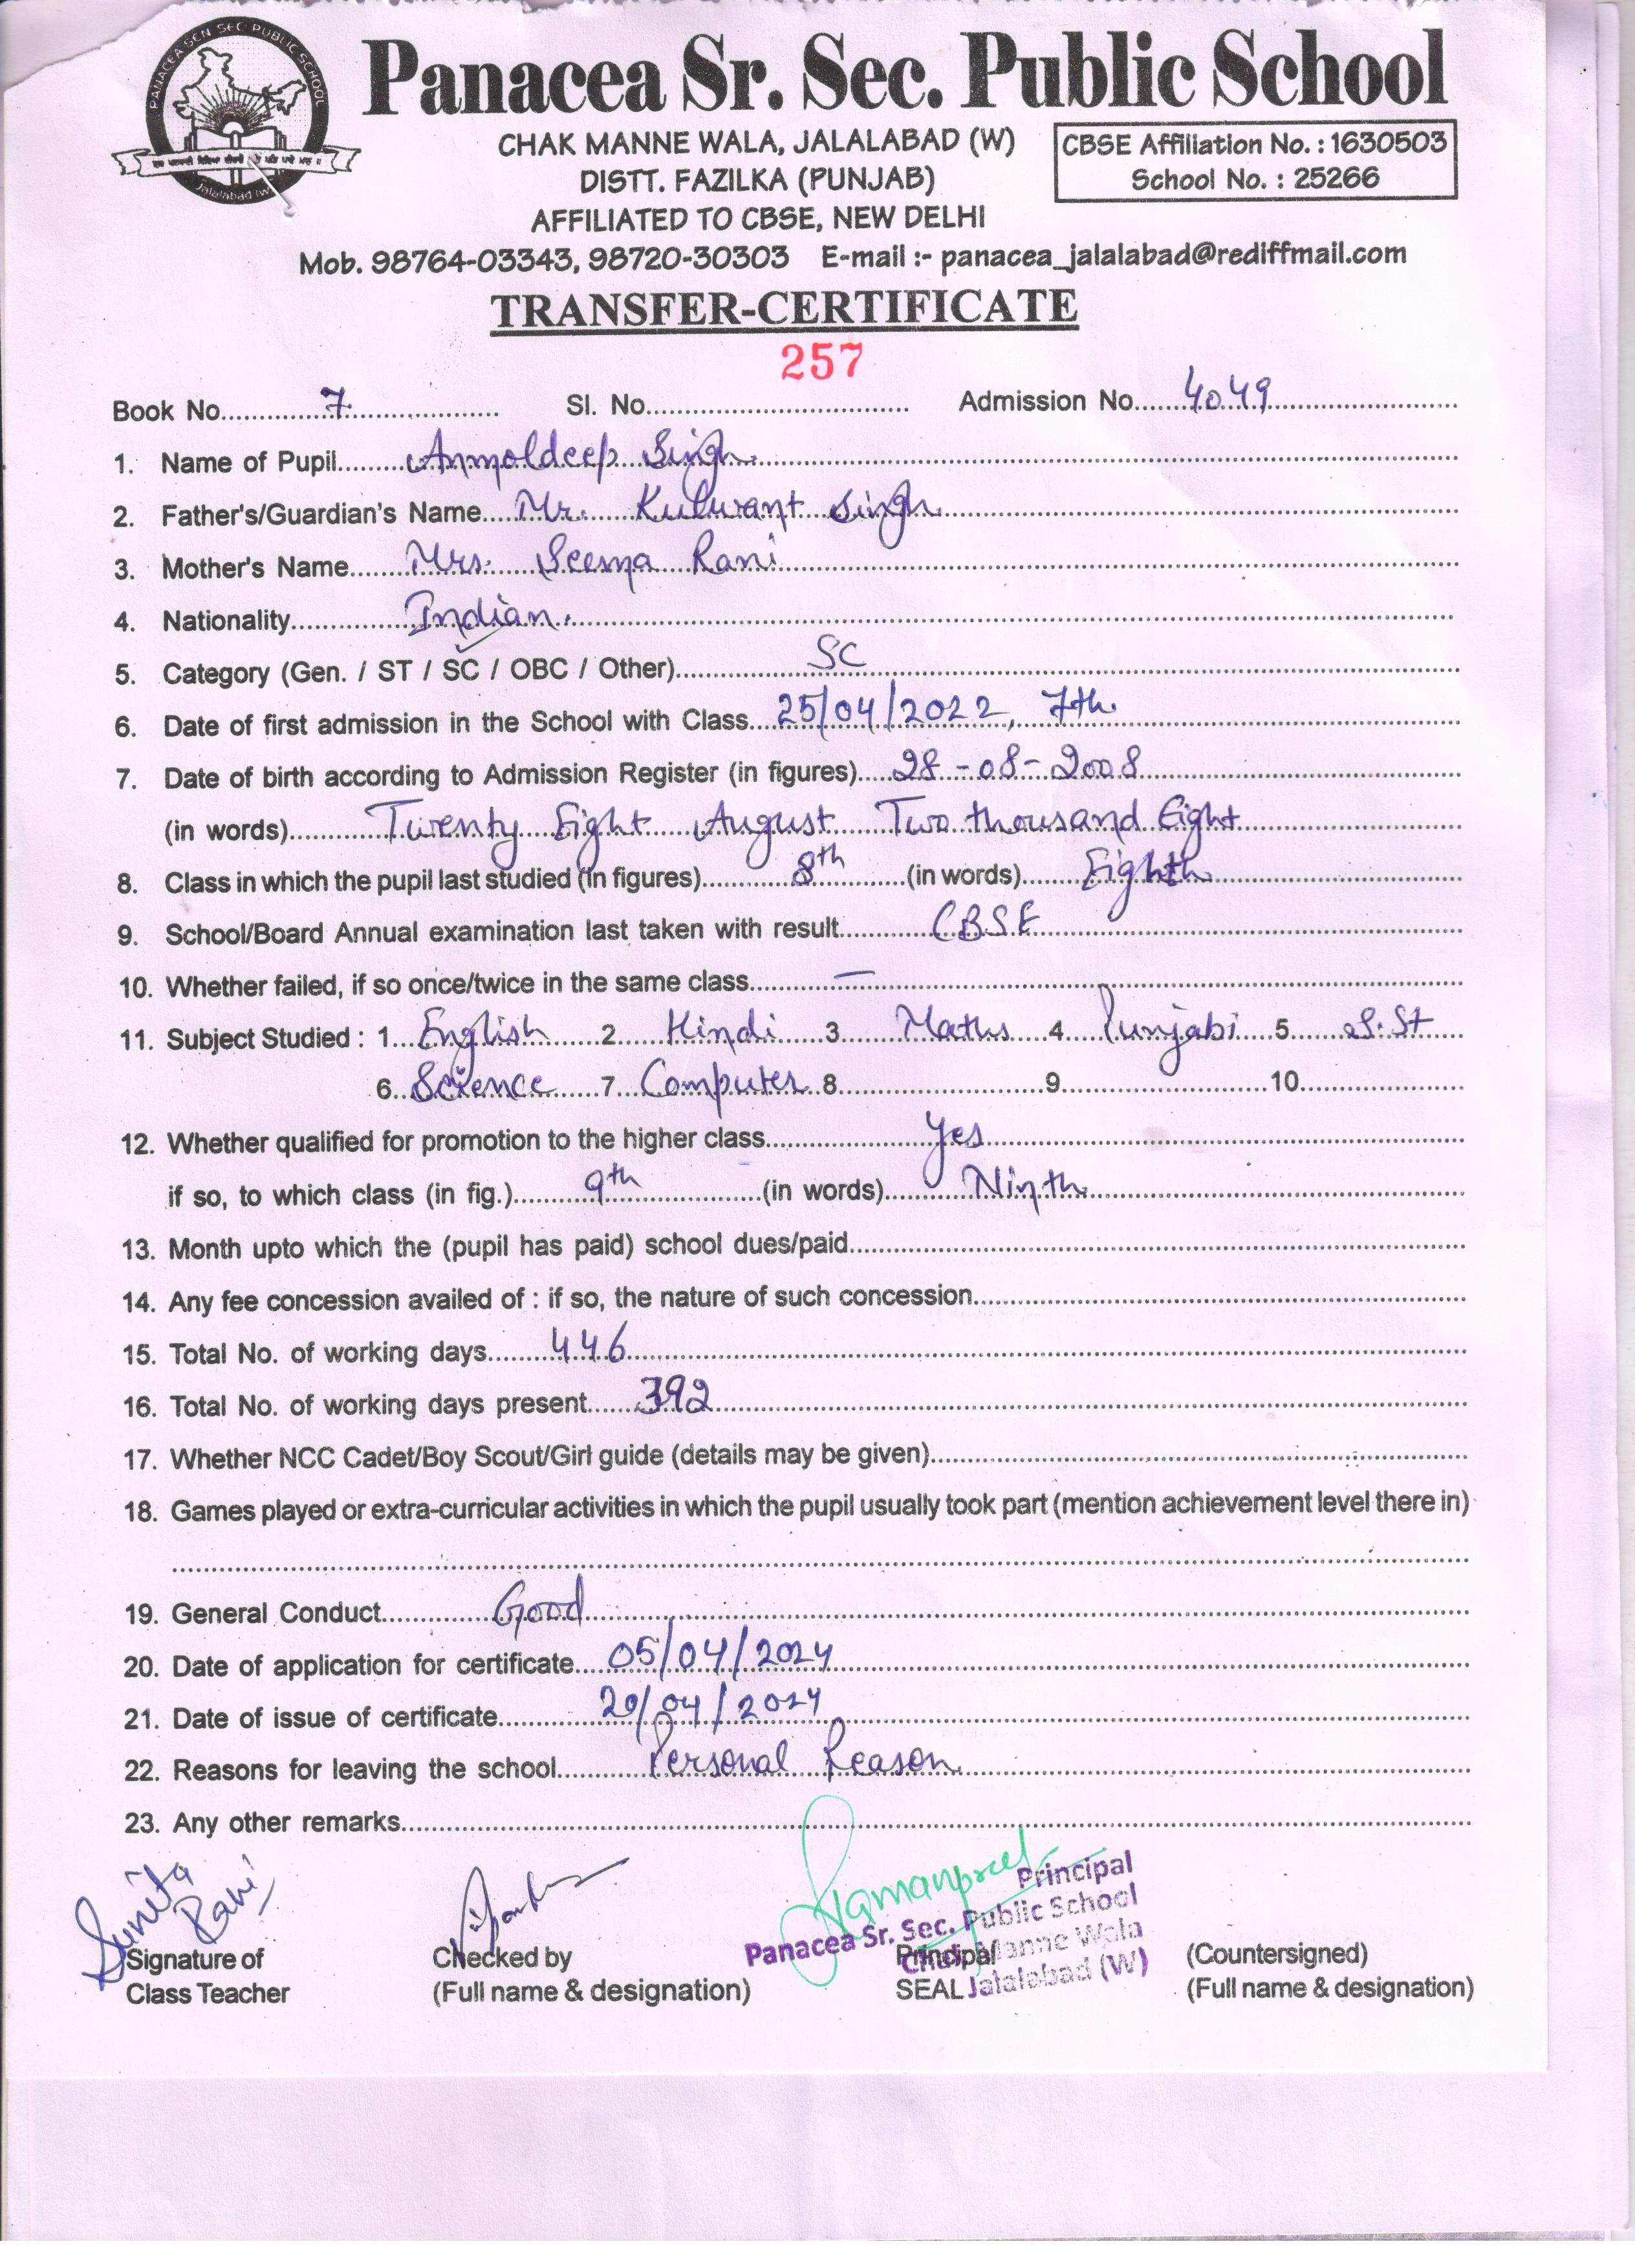 PANACEA SEN SEC PUBLIC SCHOOL
Jalalabad (w)
Panacea Sr. Sec. Public School
CHAK MANNE WALA, JALALABAD (W)
DISTT. FAZILKA (PUNJAB)
AFFILIATED TO CBSE, NEW DELHI
CBSE Affiliation No. : 1630503
School No. : 25266
Mob. 98764-03343, 98720-30303 E-mail :- panacea_jalalabad@rediffmail.com
TRANSFER-CERTIFICATE
257
Book No. 7 Sl. No. Admission No. 4049
1. Name of Pupil Anmoldeep Singh
2. Father's/Guardian's Name Mr. Kulwant Singh
3. Mother's Name Mrs. Seema Rani
4. Nationality Indian.
5. Category (Gen. / ST / SC / OBC / Other) SC
6. Date of first admission in the School with Class 25/04/2022, 7th
7. Date of birth according to Admission Register (in figures) 28-08-2008
(in words) Twenty Eight August Two thousand Eight
8. Class in which the pupil last studied (in figures) 8th (in words) Eighth
9. School/Board Annual examination last taken with result CBSE
10. Whether failed, if so once/twice in the same class —
11. Subject Studied : 1. English 2. Hindi 3. Maths 4. Punjabi 5. S.St
6. Science 7. Computer 8. 9. 10.
12. Whether qualified for promotion to the higher class Yes
if so, to which class (in fig.) 9th (in words) Ninth
13. Month upto which the (pupil has paid) school dues/paid
14. Any fee concession availed of : if so, the nature of such concession
15. Total No. of working days 446
16. Total No. of working days present 392
17. Whether NCC Cadet/Boy Scout/Girl guide (details may be given)
18. Games played or extra-curricular activities in which the pupil usually took part (mention achievement level there in)
19. General Conduct Good
20. Date of application for certificate 05/04/2024
21. Date of issue of certificate 20/04/2024
22. Reasons for leaving the school Personal Reason
23. Any other remarks
Sunita Rani
Ramanpreet
Principal
Panacea Sr. Sec. Public School
Chak Manne Wala
Jalalabad (W)
Signature of Checked by Principal (Countersigned)
Class Teacher (Full name & designation) SEAL (Full name & designation)